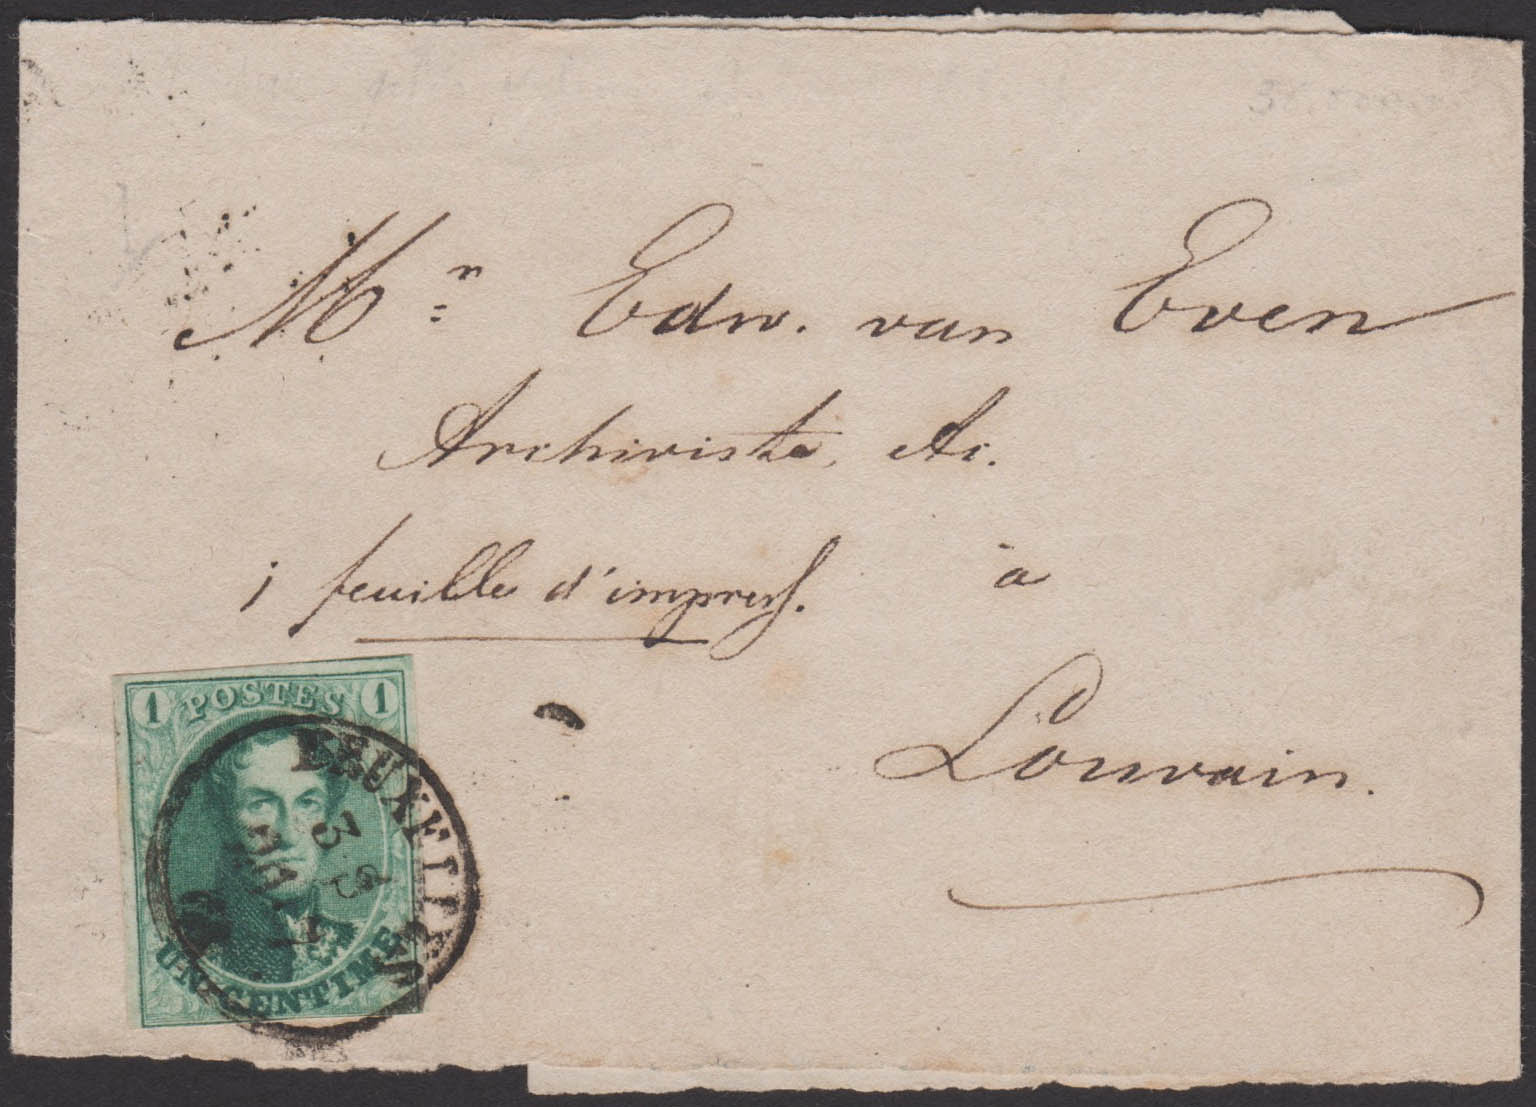 Mr. Edw. van Even
Archiviste, etc.
1 feuille d'impress. à
Louvain.
1 POSTES 1
UN CENTIME
BRUXELLES
3 S